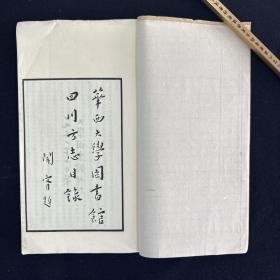 華西大學圖書館
四川方志目錄
聞宥題